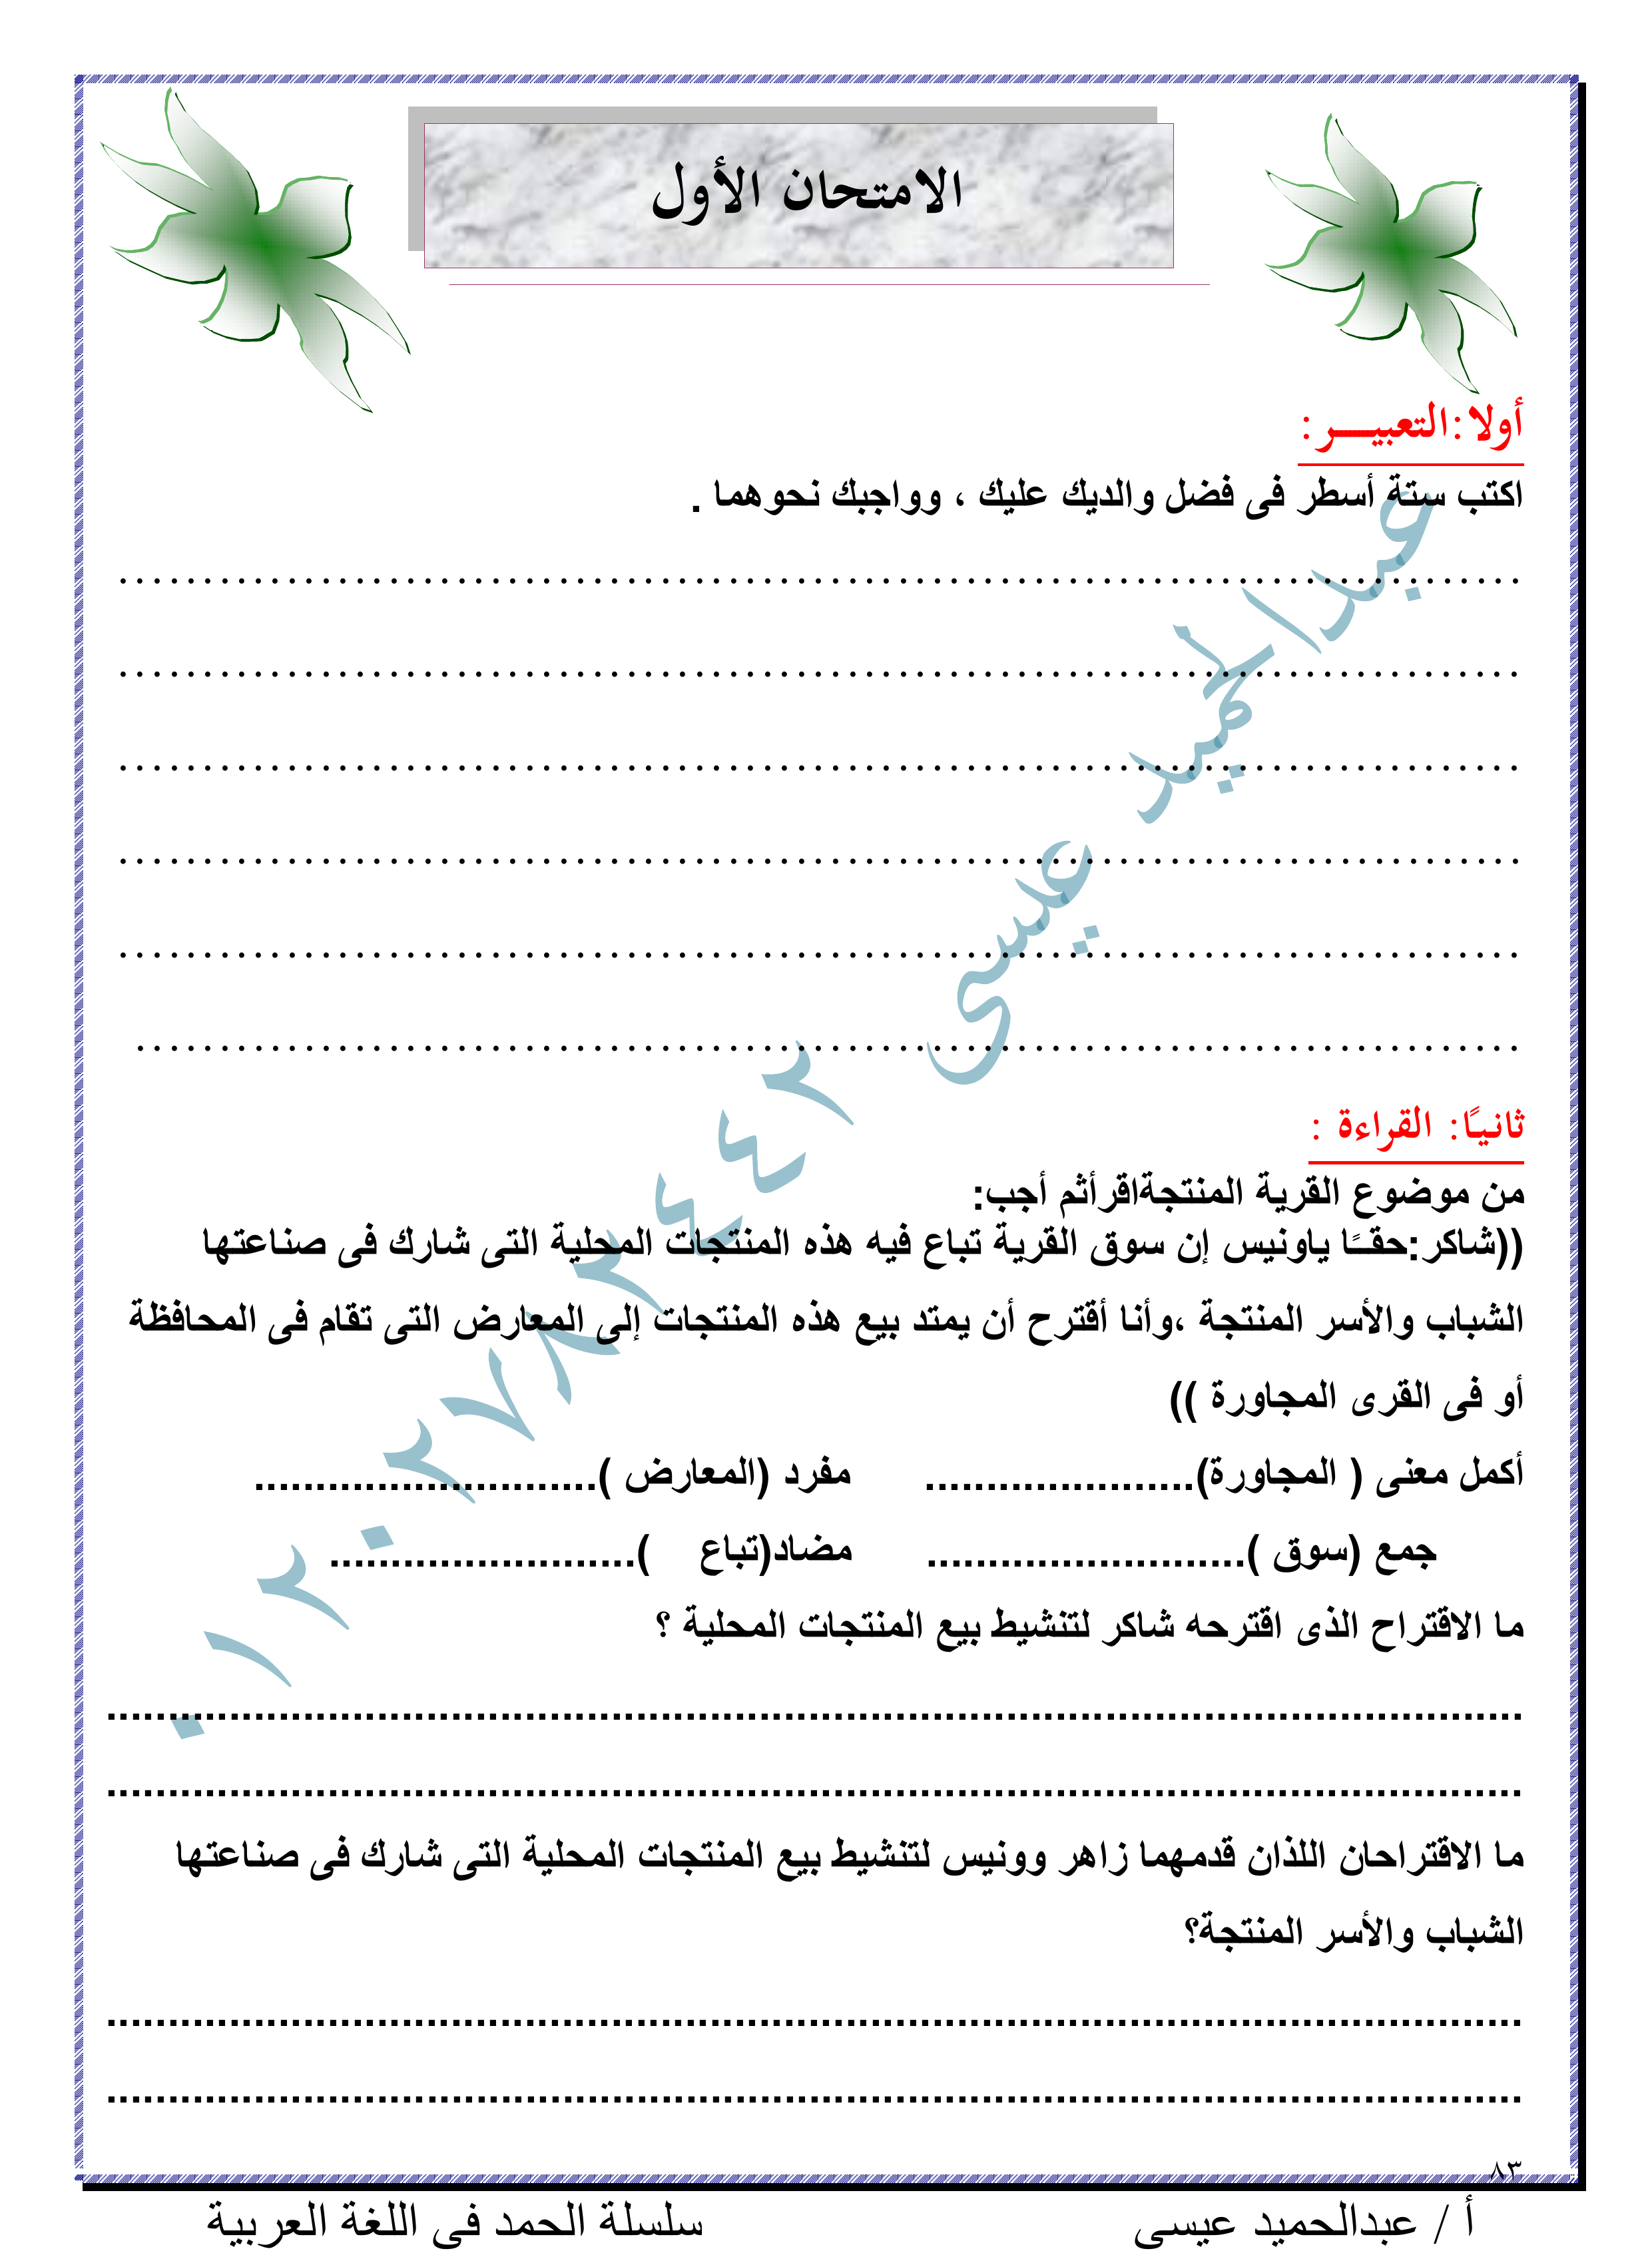 الامتحان الأول
أولا:التعبيـــر:
اكتب ستة أسطر فى فضل والديك عليك ، وواجبك نحوهما .
...................................................................................
...................................................................................
...................................................................................
...................................................................................
...................................................................................
..................................................................................
ثانيًا: القراءة :
من موضوع القرية المنتجةاقرأثم أجب:
((شاكر:حقـًا ياونيس إن سوق القرية تباع فيه هذه المنتجات المحلية التى شارك فى صناعتها
الشباب والأسر المنتجة ،وأنا أقترح أن يمتد بيع هذه المنتجات إلى المعارض التى تقام فى المحافظة
أو فى القرى المجاورة ))
أكمل معنى ( المجاورة)...................... مفرد (المعارض )............................
جمع (سوق ).......................... مضاد(تباع ).........................
ما الاقتراح الذى اقترحه شاكر لتنشيط بيع المنتجات المحلية ؟
....................................................................................................................
....................................................................................................................
ما الاقتراحان اللذان قدمهما زاهر وونيس لتنشيط بيع المنتجات المحلية التى شارك فى صناعتها
الشباب والأسر المنتجة؟
....................................................................................................................
....................................................................................................................
٨٣
أ / عبدالحميد عيسى سلسلة الحمد فى اللغة العربية
عبدالحميد عيسى ٠١٢٠٢٧٨٢٤٤٢